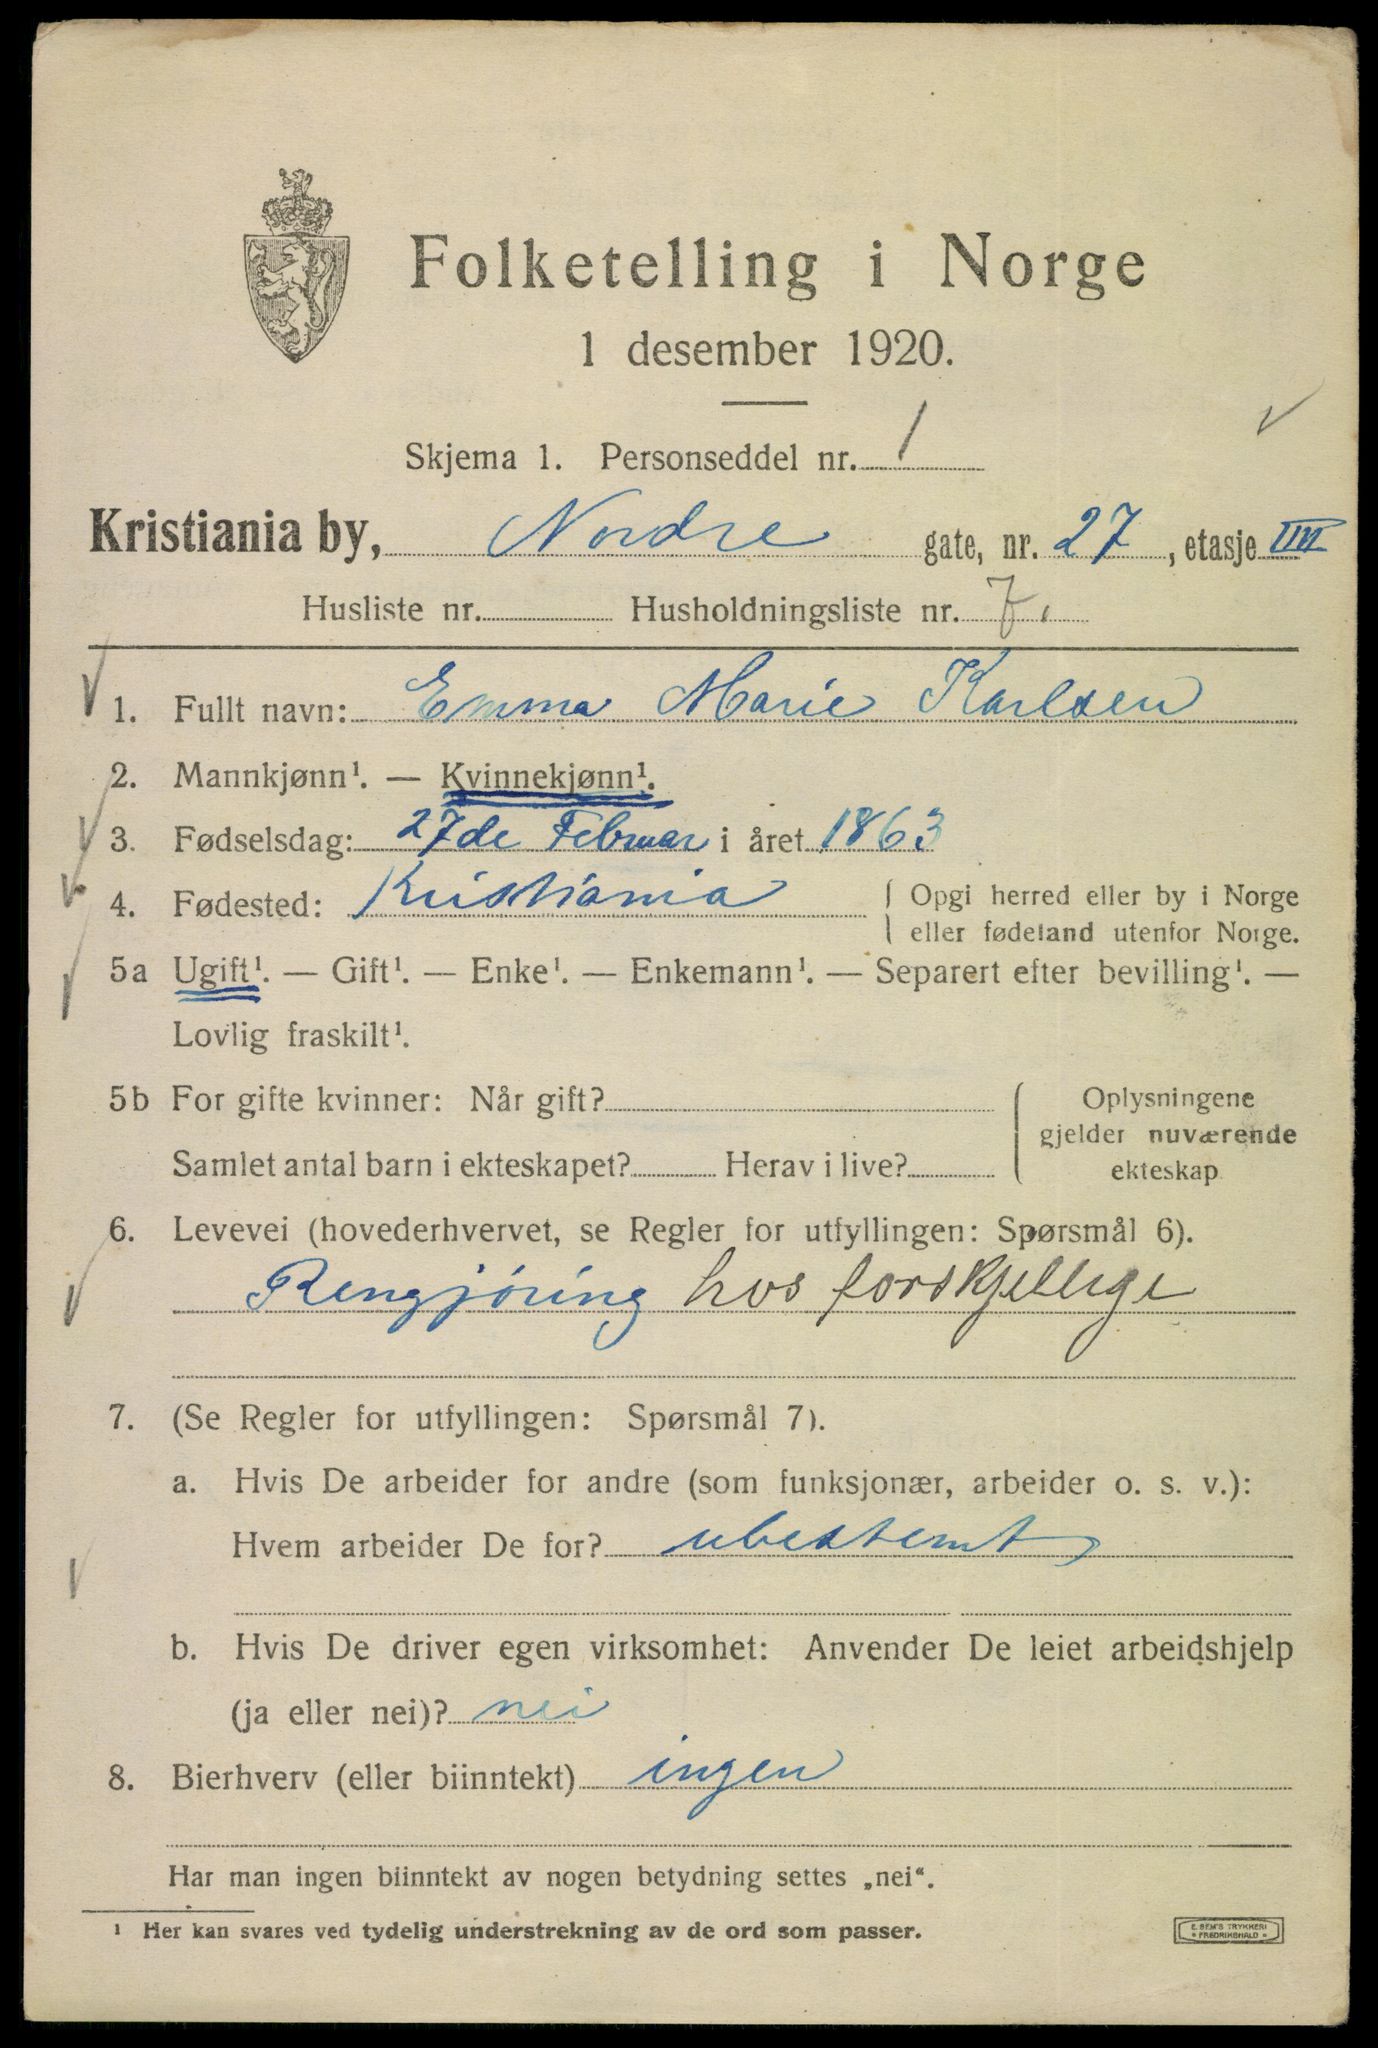 Folketelling i Norge
1 desember 1920.
Skjema 1. Personseddel nr. 1
Kristiania by, Nordre gate, nr. 27, etasje III
Husliste nr. Husholdningsliste nr. 7.
1. Fullt navn: Emma Marie Karlsen
2. Mannkjønn¹. — Kvinnekjønn¹.
3. Fødselsdag: 27de Februar i året 1863
4. Fødested: Kristiania { Opgi herred eller by i Norge
eller fødeland utenfor Norge.
5a Ugift¹. — Gift¹. — Enke¹. — Enkemann¹. — Separert efter bevilling¹. —
Lovlig fraskilt¹.
5b For gifte kvinner: Når gift?
Samlet antal barn i ekteskapet? Herav i live?
Oplysningene
gjelder nuværende
ekteskap
6. Levevei (hovederhvervet, se Regler for utfyllingen: Spørsmål 6).
Rengjöring hos forskjellige
7. (Se Regler for utfyllingen: Spørsmål 7).
a. Hvis De arbeider for andre (som funksjonær, arbeider o. s. v.):
Hvem arbeider De for? ubestemt
b. Hvis De driver egen virksomhet: Anvender De leiet arbeidshjelp
(ja eller nei)? nei
8. Bierhverv (eller biinntekt) ingen
Har man ingen biinntekt av nogen betydning settes „nei“.
¹ Her kan svares ved tydelig understrekning av de ord som passer.
E. SEM'S TRYKKERI
* FREDRIKSHALD *